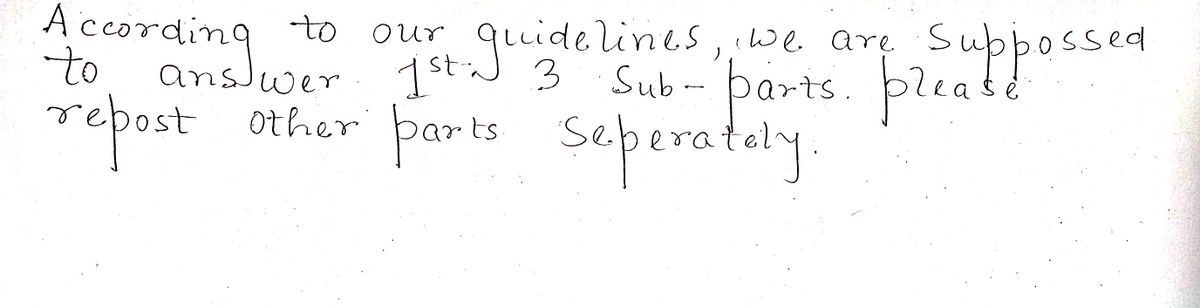 According to our guidelines, we are Suppossed
to answer 1st 3 Sub-parts. please
repost other parts seperately.